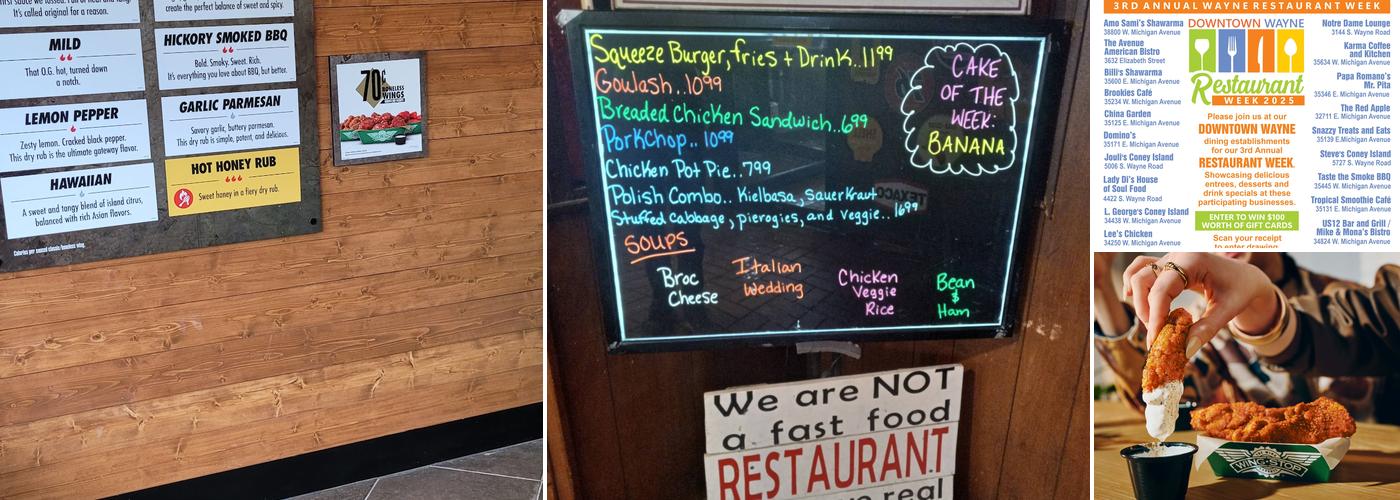 It's called original for a reason.
create the perfect balance of sweet and spicy.
MILD
That O.G. hot, turned down
a notch.
HICKORY SMOKED BBQ
Bold. Smoky. Sweet. Rich.
It's everything you love about BBQ, but better.
LEMON PEPPER
Zesty lemon. Cracked black pepper.
This dry rub is the ultimate gateway flavor.
GARLIC PARMESAN
Savory garlic, buttery parmesan.
This dry rub is simple, potent, and delicious.
HAWAIIAN
A sweet and tangy blend of island citrus,
balanced with rich Asian flavors.
HOT HONEY RUB
Sweet honey in a fiery dry rub.
70¢
BONELESS
WINGS
Squeeze Burger, fries + Drink..1199
Goulash..1099
Breaded Chicken Sandwich..699
PorkChop.. 1099
Chicken Pot Pie..799
Polish Combo.. Kielbasa, Sauerkraut
Stuffed Cabbage, pierogies, and Veggie.. 1699
CAKE
OF THE
WEEK:
BANANA
SOUPS
Broc
Cheese
Italian
Wedding
Chicken
Veggie
Rice
Bean
&
Ham
TEXACO
We are NOT
a fast food
RESTAURANT
real
3RD ANNUAL WAYNE RESTAURANT WEEK
Amo Sami's Shawarma
38800 W. Michigan Avenue
The Avenue
American Bistro
3632 Elizabeth Street
Billi's Shawarma
35600 E. Michigan Avenue
Brookies Café
35234 W. Michigan Avenue
China Garden
35125 E. Michigan Avenue
Domino's
35171 E. Michigan Avenue
Jouli's Coney Island
5006 S. Wayne Road
Lady Di's House
of Soul Food
4422 S. Wayne Road
L. George's Coney Island
34438 W. Michigan Avenue
Lee's Chicken
34250 W. Michigan Avenue
DOWNTOWN WAYNE
Restaurant
WEEK 2025
Please join us at our
DOWNTOWN WAYNE
dining establishments
for our 3rd Annual
RESTAURANT WEEK.
Showcasing delicious
entrees, desserts and
drink specials at these
participating businesses.
ENTER TO WIN $100
WORTH OF GIFT CARDS
Scan your receipt
to enter drawing
Notre Dame Lounge
3144 S. Wayne Road
Karma Coffee
and Kitchen
35634 W. Michigan Avenue
Papa Romano's
Mr. Pita
35346 E. Michigan Avenue
The Red Apple
32711 E. Michigan Avenue
Snazzy Treats and Eats
35139 E.Michigan Avenue
Steve's Coney Island
5727 S. Wayne Road
Taste the Smoke BBQ
35445 W. Michigan Avenue
Tropical Smoothie Café
35131 E. Michigan Avenue
US12 Bar and Grill /
Mike & Mona's Bistro
34824 W. Michigan Avenue
WING·STOP